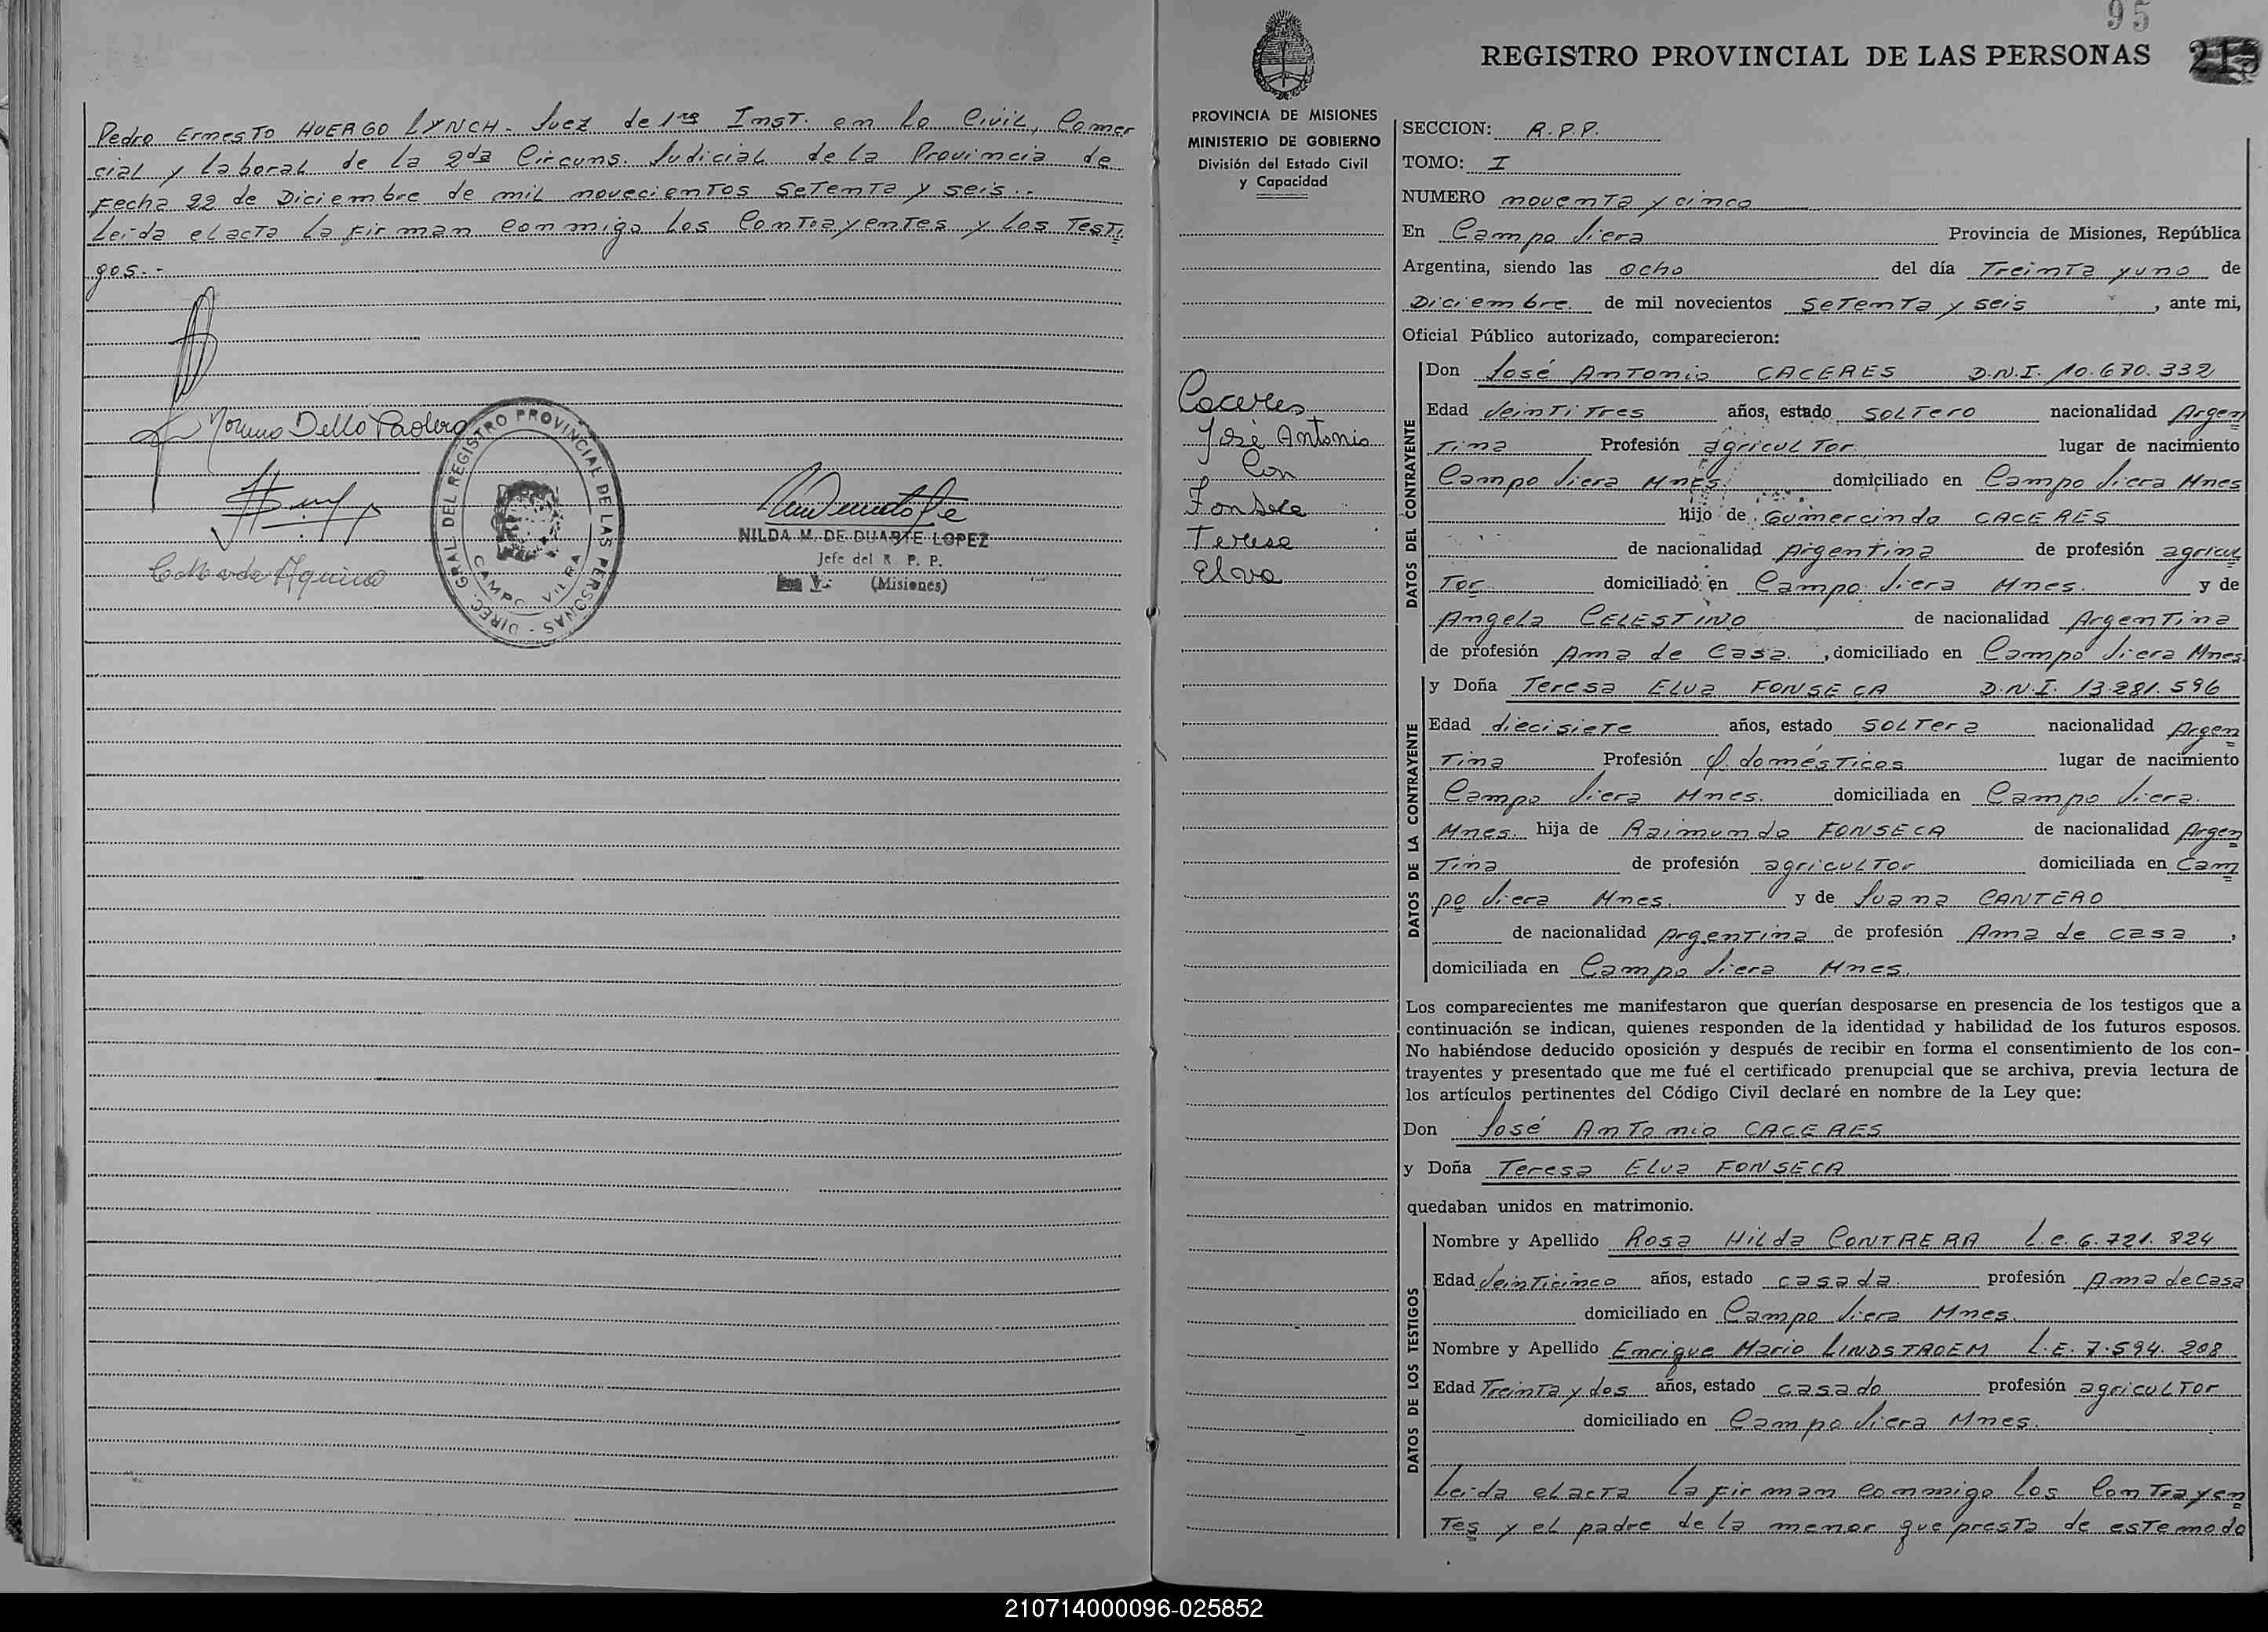 Pedro Ernesto HUERGO LYNCH.- Juez de 1ra Inst. en lo Civil, Comer
cial y laboral de la 2da Circuns. Judicial de la Provincia de
Fecha 22 de Diciembre de mil novecientos setenta y seis.-
Leida el acta la firman conmigo los Contrayentes y los testi
gos.-
DIREC. GRAL. DEL REGISTRO PROVINCIAL DE LAS PERSONAS -
CAMPO VIERA
NILDA M. DE DUARTE LOPEZ
Jefe del R. P. P.
(Misiones)
95
REGISTRO PROVINCIAL DE LAS PERSONAS
213
PROVINCIA DE MISIONES
MINISTERIO DE GOBIERNO
División del Estado Civil
y Capacidad
Caceres
José Antonio
Con
Fonseca
Teresa
Elva
SECCION: R.P.P.
TOMO: I
NUMERO noventa y cinco
En Campo Viera Provincia de Misiones, República
Argentina, siendo las ocho del día Treinta y uno de
Diciembre de mil novecientos setenta y seis, ante mi,
Oficial Público autorizado, comparecieron:
DATOS DEL CONTRAYENTE
Don José Antonio CACERES D.N.I. 10.670.332
Edad Veintitres años, estado soltero nacionalidad Argen
tina Profesión agricultor lugar de nacimiento
Campo Viera Mnes. domiciliado en Campo Viera Mnes
hijo de Gumercindo CACERES
de nacionalidad Argentina de profesión agricul
tor domiciliado en Campo Viera Mnes. y de
Angela CELESTINO de nacionalidad Argentina
de profesión Ama de Casa, domiciliado en Campo Viera Mnes.
DATOS DE LA CONTRAYENTE
y Doña Teresa Elva FONSECA D.N.I. 13.281.596
Edad diecisiete años, estado soltera nacionalidad Argen
tina Profesión Q. domésticos lugar de nacimiento
Campo Viera Mnes. domiciliada en Campo Viera
Mnes. hija de Raimundo FONSECA de nacionalidad Argen
tina de profesión agricultor domiciliada en Cam
po Viera Mnes. y de Juana CANTERO
de nacionalidad Argentina de profesión Ama de casa,
domiciliada en Campo Viera Mnes.
Los comparecientes me manifestaron que querían desposarse en presencia de los testigos que a
continuación se indican, quienes responden de la identidad y habilidad de los futuros esposos.
No habiéndose deducido oposición y después de recibir en forma el consentimiento de los con-
trayentes y presentado que me fué el certificado prenupcial que se archiva, previa lectura de
los artículos pertinentes del Código Civil declaré en nombre de la Ley que:
Don José Antonio CACERES
y Doña Teresa Elva FONSECA
quedaban unidos en matrimonio.
DATOS DE LOS TESTIGOS
Nombre y Apellido Rosa Hilda CONTRERA L.C. 6.721.824
Edad Veinticinco años, estado casada profesión Ama de Casa
domiciliado en Campo Viera Mnes.
Nombre y Apellido Enrique Mario LINDSTROEM L.E. 7.594.208
Edad Treinta y dos años, estado casado profesión agricultor
domiciliado en Campo Viera Mnes.
Leida el acta la firman conmigo los Contrayen
tes y el padre de la menor que presta de este modo
210714000096-025852